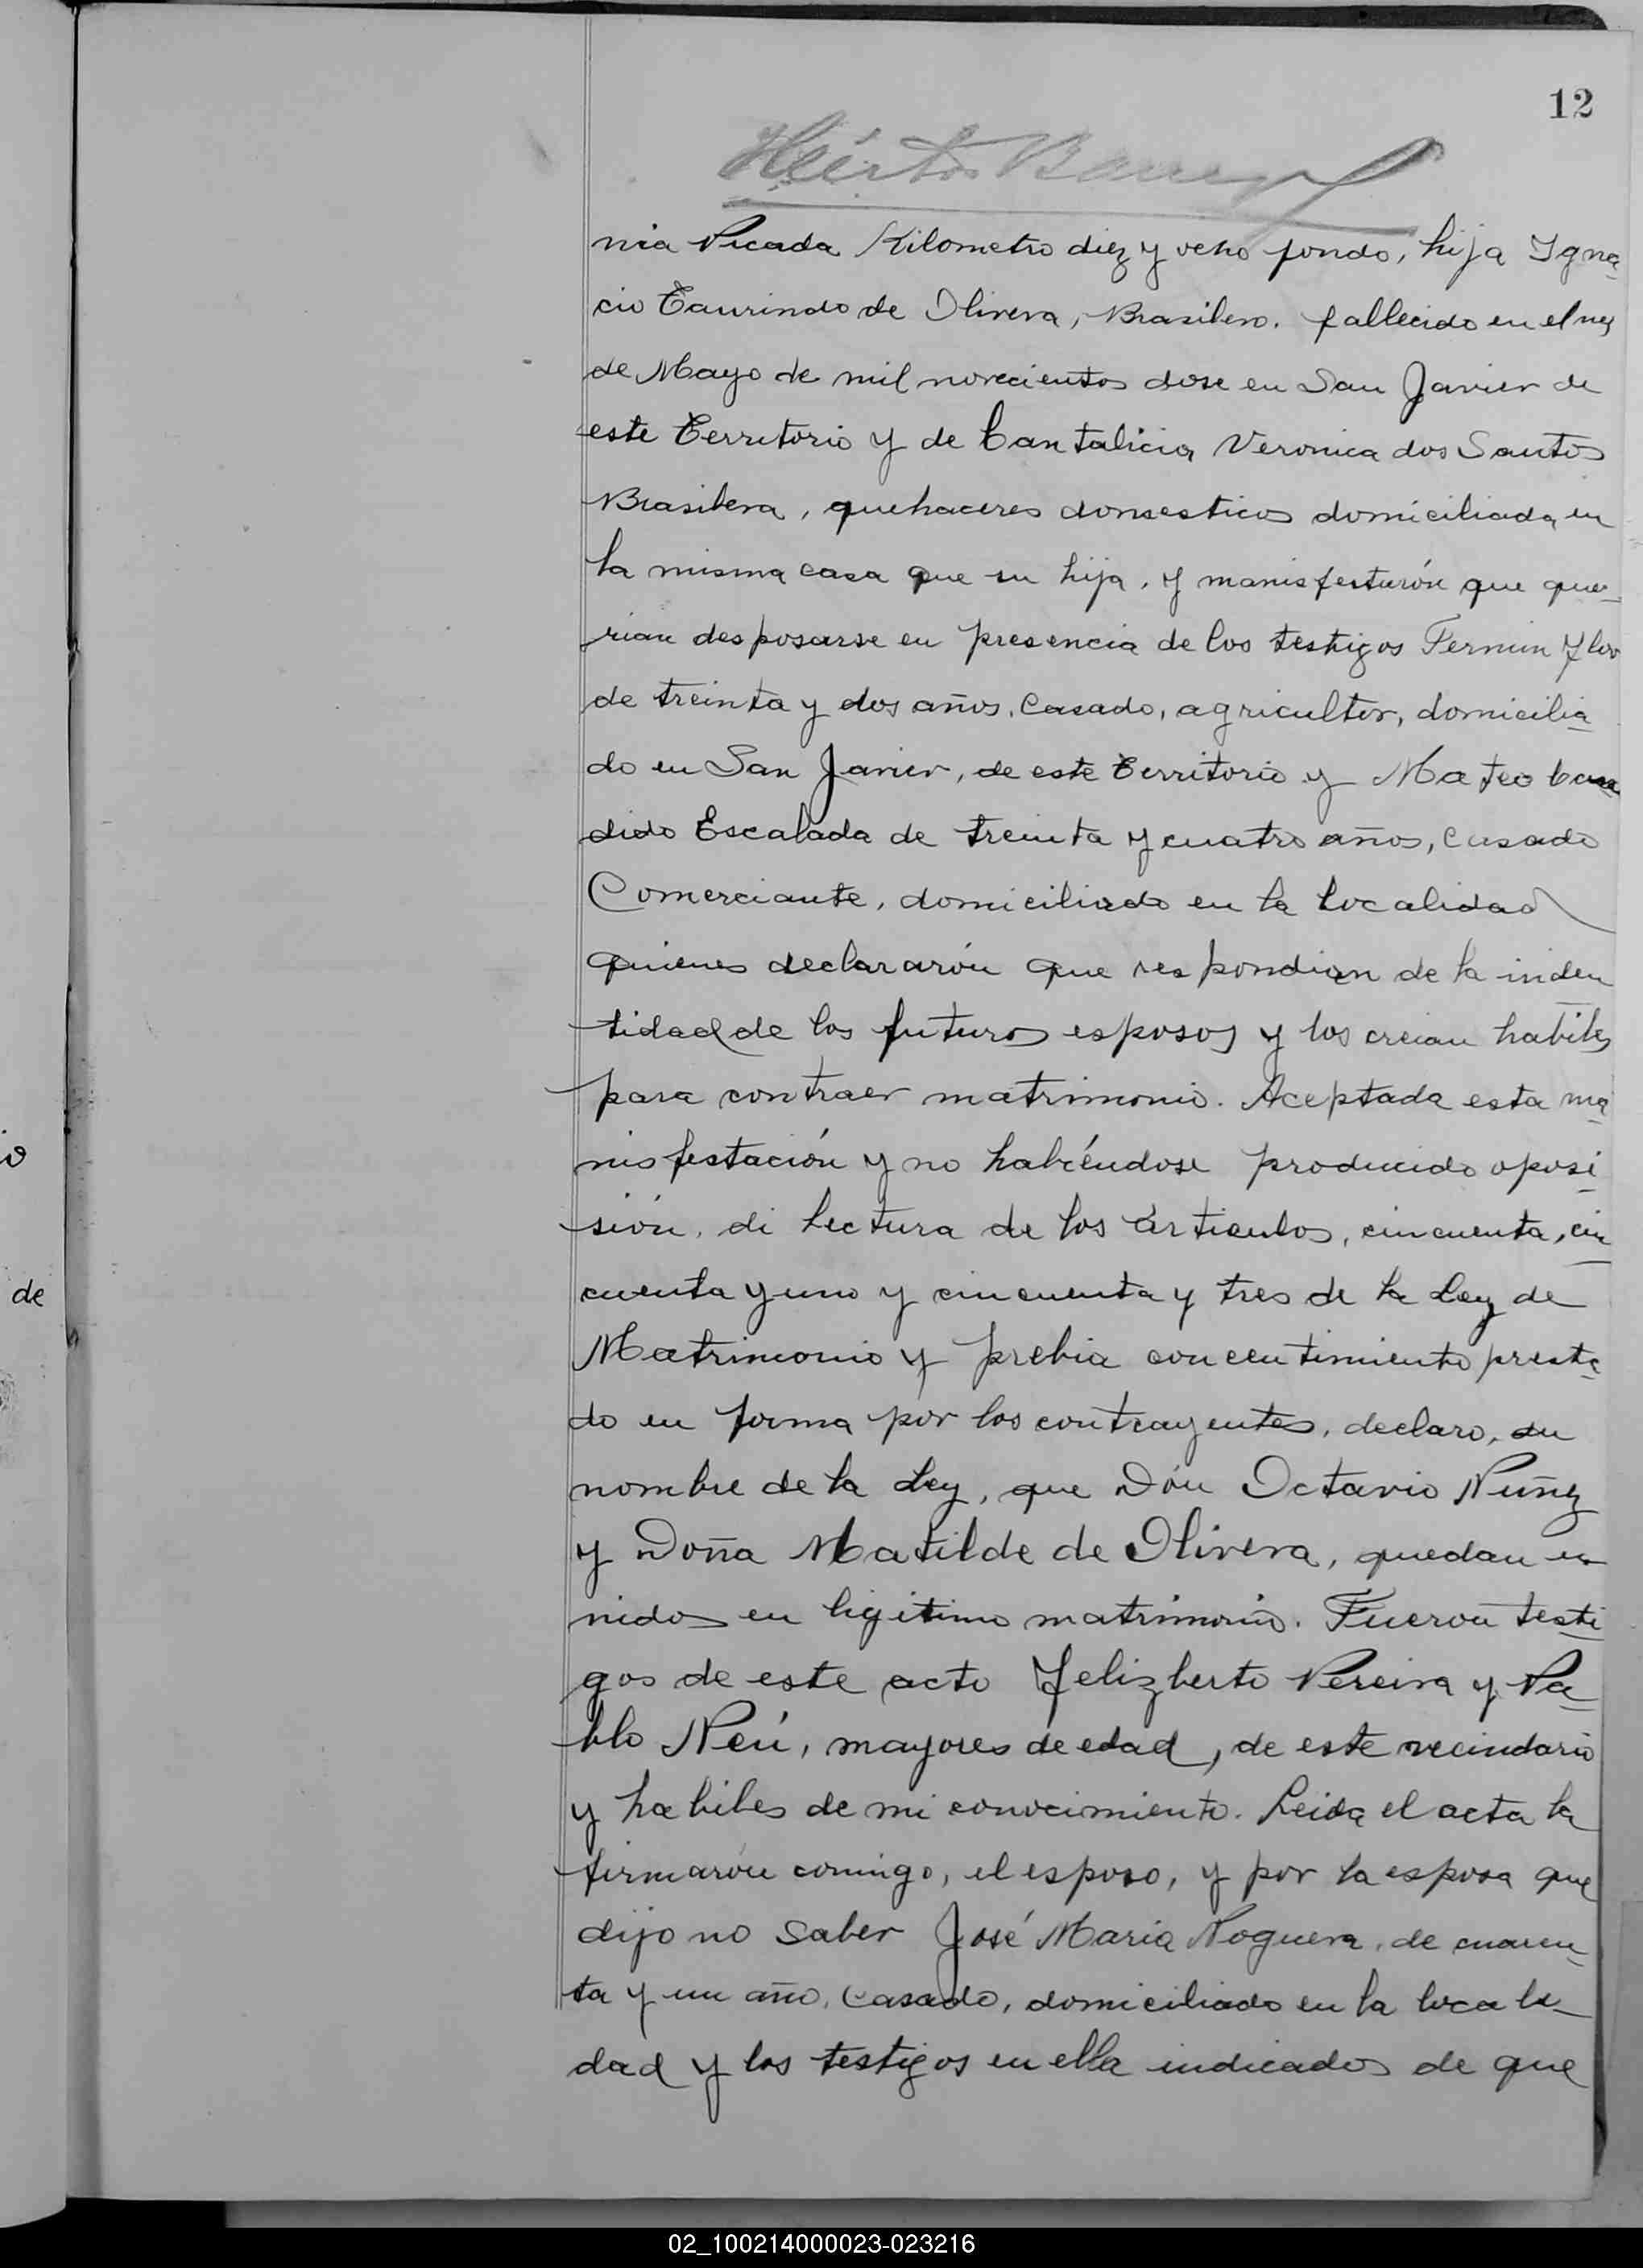 12
Héctor Barreyro
nia Picada Kilometro diez y ocho fondo, hija Igna
cio Taurindo de Olivera, Brasilero. fallecido en el mes
de Mayo de mil novecientos dose en San Javier de
este Territorio y de Cantalicia Veronica dos Santos
Brasilera, quehaceres domesticos domiciliada en
la misma casa que su hija, y manisfestarón que que-
rian desposarse en presencia de los testigos Fermin Flor
de treinta y dos años, Casado, agricultor, domicilia
do en San Javier, de este Territorio y Mateo Can
dido Escalada de treinta y cuatro años, Casado
Comerciante, domiciliado en la localidad
quienes declararón que respondian de la inden
tidad de los futuros esposos y los creian habiles
para contraer matrimonio. Aceptada esta ma
nisfestación y no habiéndose producido oposi
sión, di lectura de los articulos, cincuenta, cin
cuenta y uno y cincuenta y tres de la Ley de
Matrimonio y prebia concentimiento presta
do en forma por los contrayentes, declaro, en
nombre de la Ley, que Dón Octavio Nuñez
y Doña Matilde de Olivera, quedan u
nidos en ligitimo matrimonio. Fueron testi
gos de este acto Felizberto Pereira y Pa
blo Neú, mayores de edad, de este vecindario
y habiles de mi conocimiento. Leida el acta la
firmarón comigo, el esposo, y por la esposa que
dijo no saber José Maria Noguera, de cuaren
ta y un año, Casado, domiciliado en la locali
dad y los testigos en ella indicados de que
io
de
02_100214000023-023216